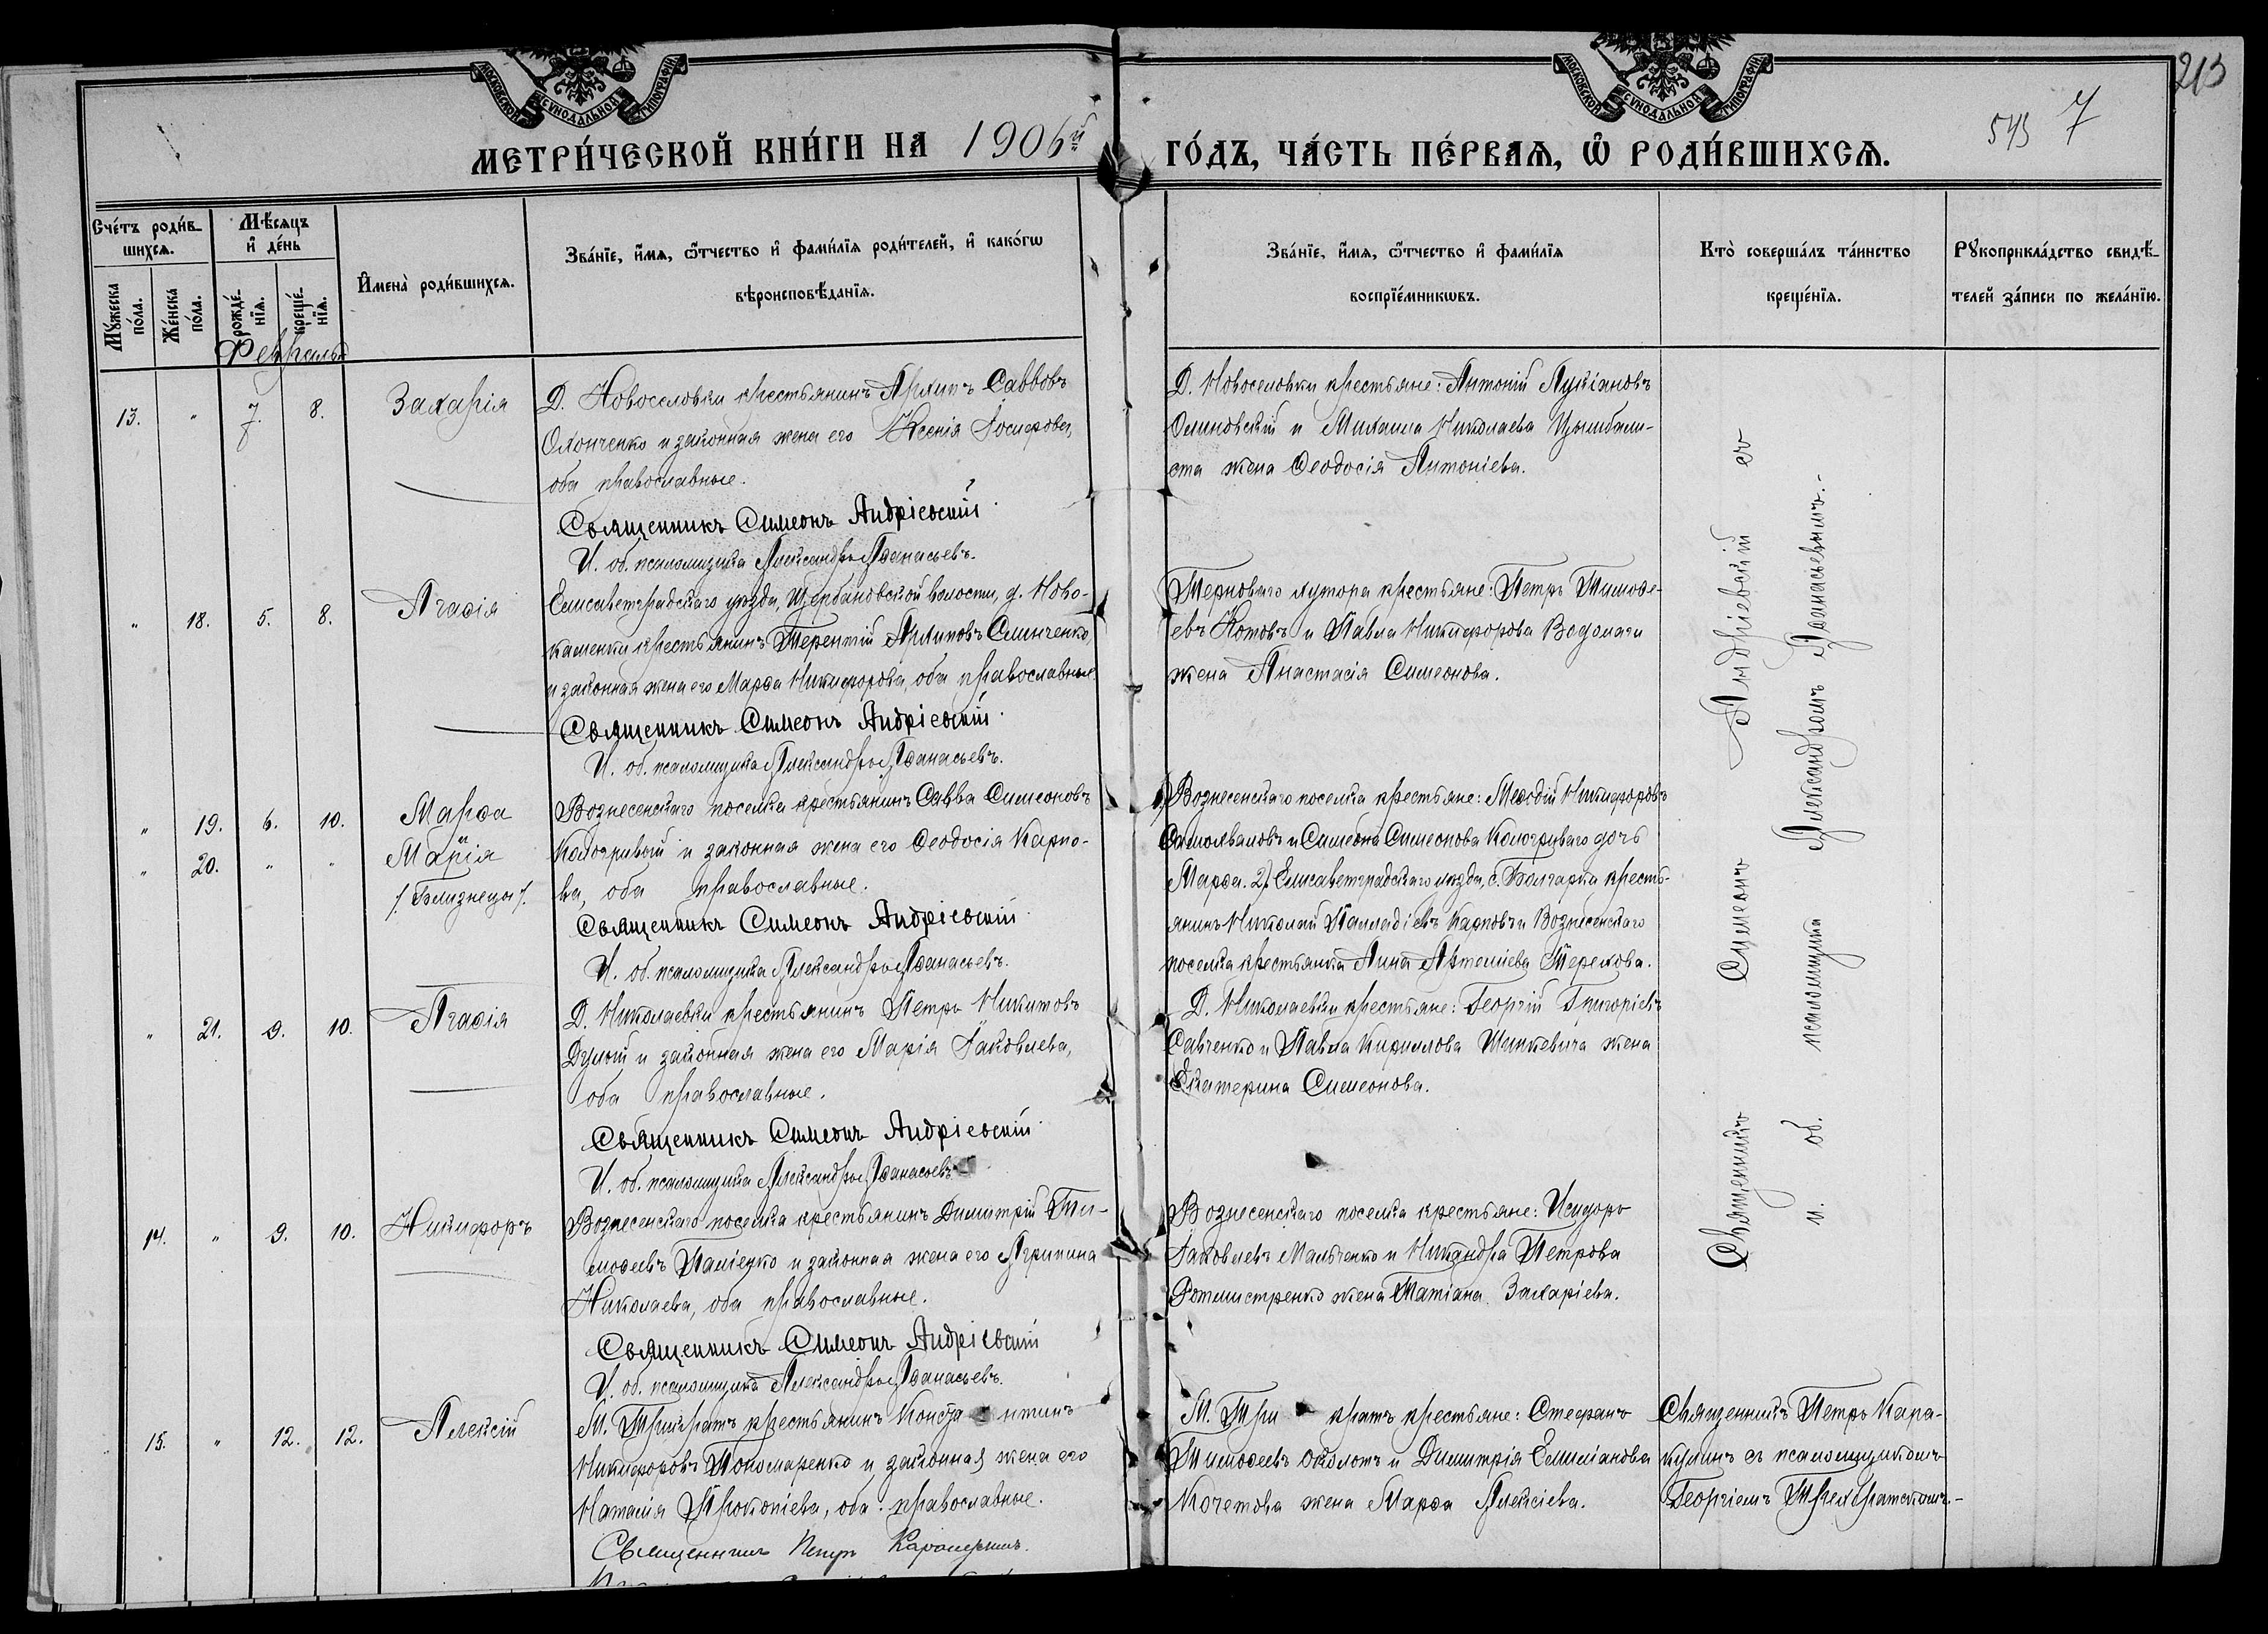 213
543 7
МОСКОВСКОЙ СѴНОДАЛЬНОЙ ТИПОГРАФІИ
МОСКОВСКОЙ СѴНОДАЛЬНОЙ ТИПОГРАФІИ
МЕТРИ́ЧЕСКОЙ КНИ́ГИ НА 1906й ГО́ДЪ, ЧА́СТЬ ПЕ́РВАЯ, Ѡ҆ РОДИ́ВШИХСЯ.
Сче́тъ роди́в-
шихся.
Мꙋ́жеска по́ла.
Же́нска по́ла.
Мѣ́сяцъ
и҆ де́нь
рожде́-
нїя.
креще́-
нїя.
И҆мена̀ роди́вшихся.
Зва́нїе, и҆́мя, ѻ҆́тчество и҆ фами́лїя роди́телей, и҆ како́гѡ
вѣроисповѣ́данїя.
Зва́нїе, и҆́мя, ѻ҆́тчество и҆ фами́лїя
воспрїе́мникѡвъ.
Кто̀ соверша́лъ та́инство
креще́нїя.
Рꙋкоприкла́дство свидѣ́-
телей за́писи по жела́нїю.
Февраль
13. " 7. 8. Захарія
Д. Новоселовки крестьянинъ Архипъ Саввовъ
Охонченко и законная жена его Ксенія Іосифова,
оба православные.
Священникъ Симеонъ Андріевскій
И. об. псаломщика Александръ Аѳанасьевъ.
Д. Новоселовки крестьяне: Антоній Лукіановъ
Олиновскій и Михаила Николаева Цымбали-
ста жена Ѳеодосія Антоніева.
" 18. 5. 8. Агаѳія
Елисаветградскаго уѣзда, Щербановской волости, д. Ново-
каменки крестьянинъ Терентій Архиповъ Слинченко,
и законная жена его Марѳа Никифорова, оба православные.
Священникъ Симеонъ Андріевскій
И. об. псаломщика Александръ Аѳанасьевъ.
Терноваго хутора крестьяне: Петръ Тимоѳе-
евъ Котовъ и Павла Никифорова Водолаги
жена Анастасія Симеонова.
" 19. 6. 10. Марѳа
и
" 20. " " Марія
/. Близнецы /.
Вознесенскаго поселка крестьянинъ Савва Симеоновъ
Кологривый и законная жена его Ѳеодосія Карпо-
ва, оба православные.
Священникъ Симеонъ Андріевскій
И. об. псаломщика Александръ Аѳанасьевъ.
Вознесенскаго поселка крестьяне: Меѳодій Никифоровъ
Самохваловъ и Симеона Симеонова Кологриваго дочь
Марѳа. 2/. Елисаветградскаго уѣзда, с. Болгарки кресть-
янинъ Николай Палладіевъ Карповъ и Вознесенскаго
поселка крестьянка Анна Артеміева Терехова.
" 21. 9. 10. Агаѳія
Д. Николаевки крестьянинъ Петръ Никитовъ
Дулой и законная жена его Марія Іаковлева,
оба православные.
Священникъ Симеонъ Андріевскій
И. об. псаломщика Александръ Аѳанасьевъ
Д. Николаевки крестьяне: Георгій Григоріевъ
Савченко и Павла Кириллова Шинкевича жена
Екатерина Симеонова.
14. " 9. 10. Никифоръ
Вознесенскаго поселка крестьянинъ Димитрій Ти-
моѳеевъ Паліенко и законная жена его Агрипина
Николаева, оба православные.
Священникъ Симеонъ Андріевскій
И. об. псаломщика Александръ Аѳанасьевъ.
Вознесенскаго поселка крестьяне: Исидоръ
Іаковлевъ Мальченко и Никандра Петрова
Ротмистренко жена Татіана Захаріева.
Священникъ Симеонъ Андріевскій съ
и. об. псаломщика Александромъ Аѳанасьевымъ.-
15. " 12. 12. Алексій
М. Трикратъ крестьянинъ Константинъ
Никифоровъ Пономаренко и законная жена его
Наталія Прокопіева, оба православные.
Священникъ Петръ Каракулинъ.
М. Трикратъ крестьяне: Стефанъ
Тимоѳеевъ Околотъ и Димитрія Емиліанова
Кочетова жена Марѳа Алексіева.
Священникъ Петръ Кара-
кулинъ съ псаломщикомъ
Георгіемъ Трехбратскимъ.-